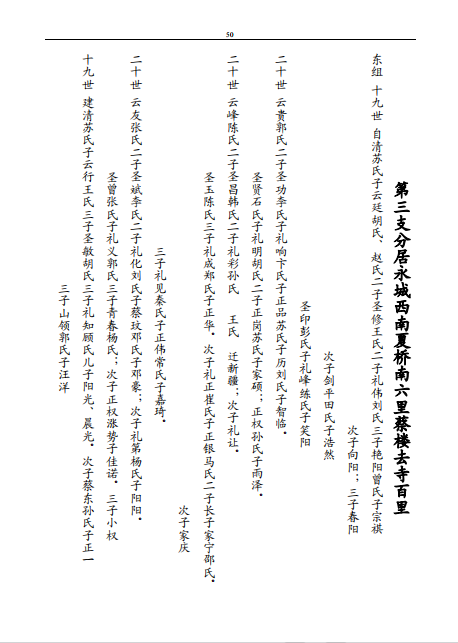 50
第三支分居永城西南夏桥南六里蔡楼去寺百里
东组 十九世 自清苏氏子云廷胡氏、赵氏二子圣修王氏二子礼伟刘氏三子艳阳曾氏子宗祺
次子向阳；三子春阳
次子剑平田氏子浩然
圣印彭氏子礼峰练氏子笑阳
二十世 云贵郭氏二子圣功李氏子礼响卞氏子正品苏氏子历刘氏子智临。
圣贤石氏子礼明胡氏二子正岗苏氏子家硕；正权孙氏子雨泽。
二十世 云峰陈氏二子圣昌韩氏二子礼彩孙氏 王氏 迁新疆；次子礼让。
圣玉陈氏三子礼成郑氏子正华。次子礼正崔氏子正银马氏二子长子家宁邵氏。
次子家庆
三子礼见秦氏子正伟常氏子嘉琦。
二十世 云友张氏二子圣斌李氏二子礼化刘氏子蔡玟邓氏子邓豪；次子礼第杨氏子阳阳。
圣曾张氏子礼义郭氏三子青春杨氏；次子正权涨势子佳诺。三子小权
十九世 建清苏氏子云行王氏三子圣敏胡氏三子礼知顾氏儿子阳光、晨光。次子蔡东孙氏子正一
三子山领郭氏子汪洋